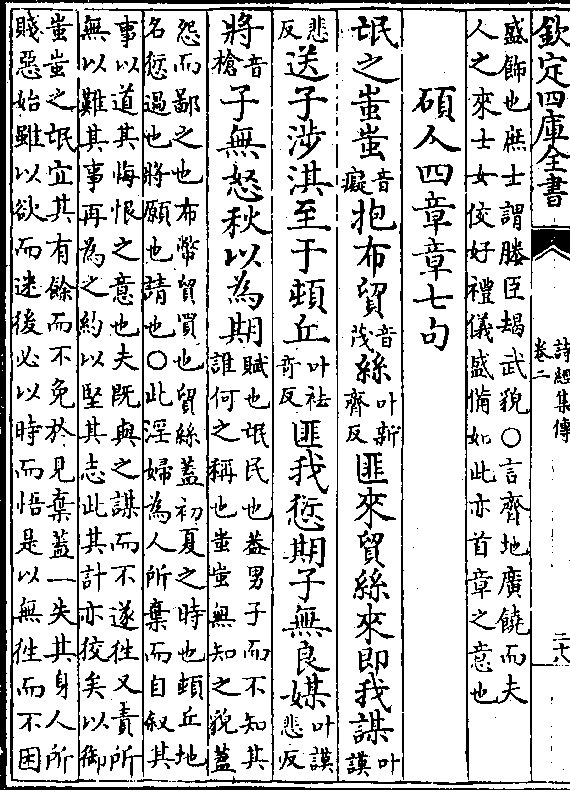 欽定四庫全書
詩經集傳
卷二
盛飾也庶士謂媵臣朅武貌○言齊地廣饒而夫
人之來士女佼好禮儀盛備如此亦首章之意也
碩人四章章七句
氓之蚩蚩音癡抱布貿音茂絲叶新齊反匪來貿絲來即我謀叶謨
悲反送子涉淇至于頓丘叶祛奇反匪我愆期子無良媒叶謨悲反
將音槍子無怒秋以為期賦也氓民也蓋男子而不知其誰何之稱也蚩蚩無知之貌蓋
怨而鄙之也布幣貿買也貿絲蓋初夏之時也頓丘地
名愆過也將願也請也○此淫婦為人所棄而自叙其
事以道其悔恨之意也夫既與之謀而不遂往又責所
無以難其事再為之約以堅其志此其計亦狡矣以御
蚩蚩之氓宜其有餘而不免於見棄蓋一失其身人所
賤惡始雖以欲而迷後必以時而悟是以無往而不困